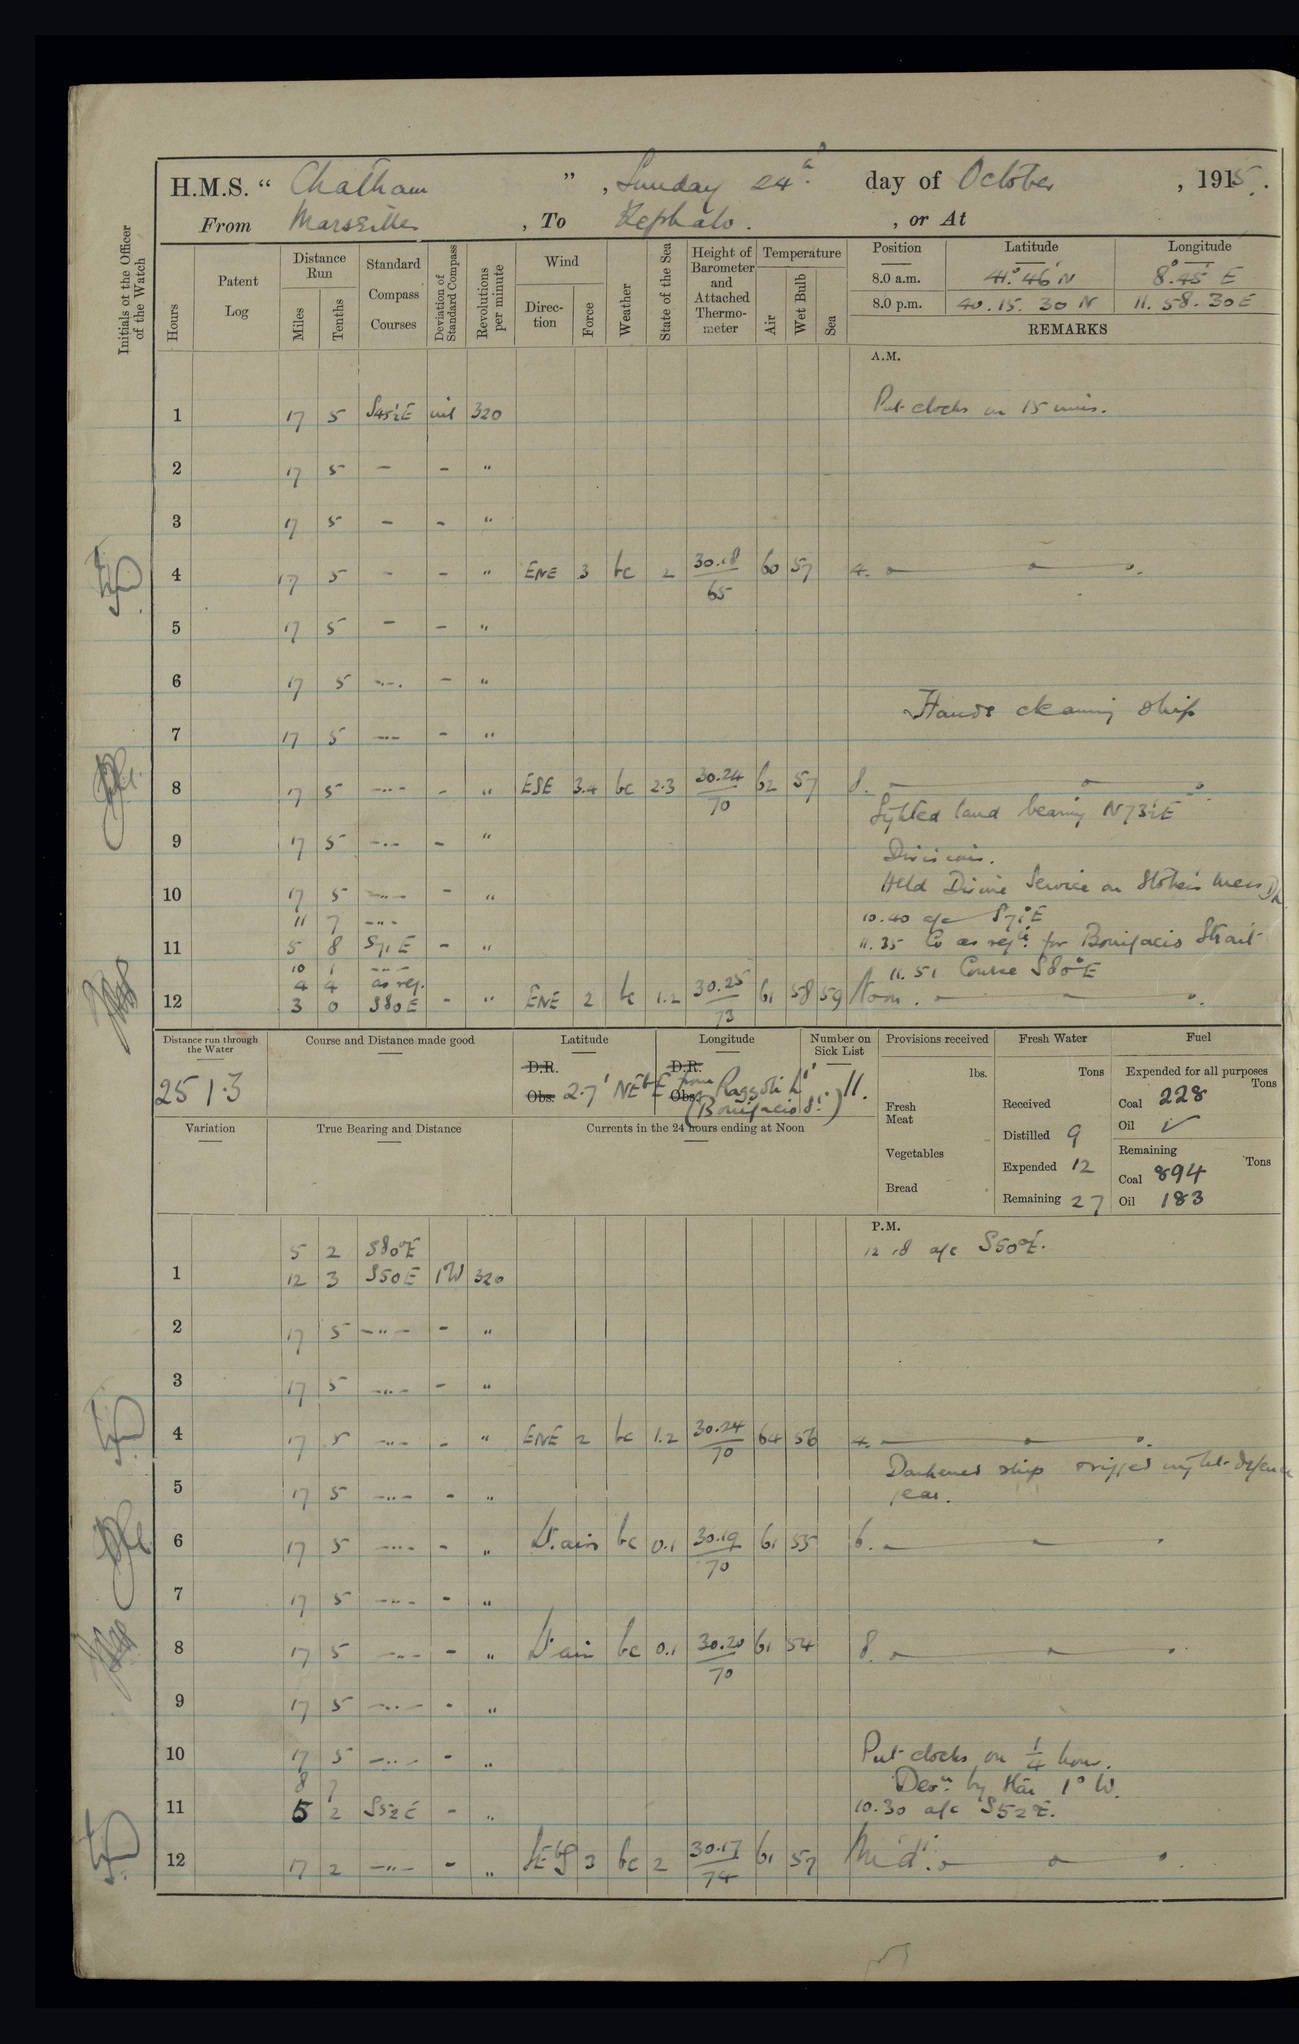 H.M.S. “ Chatham ” , Sunday 24th day of October , 1915.
From Marseilles , To Kephalo . , or At
Initials of the Officer of the Watch
Hours
Patent Log
Distance Run
Miles
Tenths
Standard Compass Courses
Deviation of Standard Compass
Revolutions per minute
Wind
Direction
Force
Weather
State of the Sea
Height of Barometer and Attached Thermometer
Temperature
Air
Wet Bulb
Sea
Position Latitude Longitude
8.0 a.m. 41° 46' N 8° 45' E
8.0 p.m. 40. 15. 30 N 11. 58. 30 E
REMARKS
A.M.
1 17 5 S45½E nil 320 Put clocks on 15 mins.
2 17 5 – – "
3 17 5 – – "
4 17 5 – – " ENE 3 bc 2 30.18/65 60 57 4.
5 17 5 – – "
6 17 5 –"– – "
Hands cleaning ship
7 17 5 –"– – "
8 17 5 –"– – " ESE 3.4 bc 2.3 30.24/70 62 57 8.
Sighted land bearing N73½E
9 17 5 –"– – "
Divisions.
10 17 5 –"– – " Held Divine Service on Stokers Mess Dk
11 7 –"– 10.40 a/c S71°E
11 5 8 S71E – " 11.35 Co as reqd. for Bonifacio Strait
10 1 –"– 11.51 Course S80°E
4 4 as req.
12 3 0 S80E – " ENE 2 bc 1.2 30.25/73 61 58 59 Noon.
Distance run through the Water
251.3
Course and Distance made good
Latitude
D.R.
Obs.
Longitude
D.R.
Obs.
2.7' NEbE from Razzoli Lt. (Bonifacio St.)
Number on Sick List
11.
Provisions received
lbs.
Fresh Meat
Vegetables
Bread
Fresh Water
Tons
Received
Distilled 9
Expended 12
Remaining 27
Fuel
Expended for all purposes
Tons
Coal 228
Oil ✓
Remaining
Tons
Coal 894
Oil 183
Variation
True Bearing and Distance
Currents in the 24 hours ending at Noon
P.M.
5 2 S80°E 12.18 a/c S50°E.
1 12 3 S50E 1W 320
2 17 5 –"– – "
3 17 5 –"– – "
4 17 5 –"– – " ENE 2 bc 1.2 30.24/70 64 56 4.
Darkened ship & rigged night defence
5 17 5 –"– – " gear.
6 17 5 –"– – " Lt. airs bc 0.1 30.19/70 61 55 6.
7 17 5 –"– – "
8 17 5 –"– – " Lt air bc 0.1 30.20/70 61 54 8.
9 17 5 –"– – "
10 17 5 –"– – " Put clocks on ¼ hour.
8 7 Devn. by 1° W.
11 5 2 S52E – " 10.30 a/c S52°E.
12 17 2 –"– – " SEbS 3 bc 2 30.17/74 61 57 Midt.